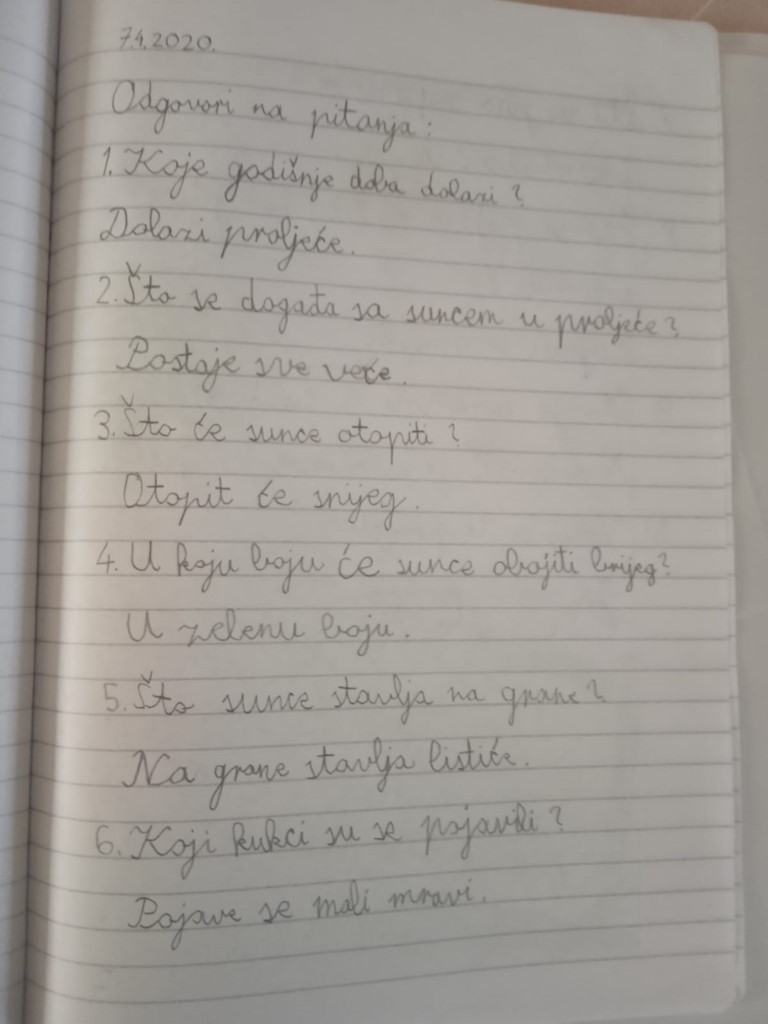 7.4.2020.
Odgovori na pitanja:
1. Koje godišnje doba dolazi?
Dolazi proljeće.
2. Što se događa sa suncem u proljeće?
Postaje sve veće.
3. Što će sunce otopiti?
Otopit će snijeg.
4. U koju boju će sunce obojiti brijeg?
U zelenu boju.
5. Što sunce stavlja na grane?
Na grane stavlja listiće.
6. Koji kukci su se pojavili?
Pojave se mali mravi.